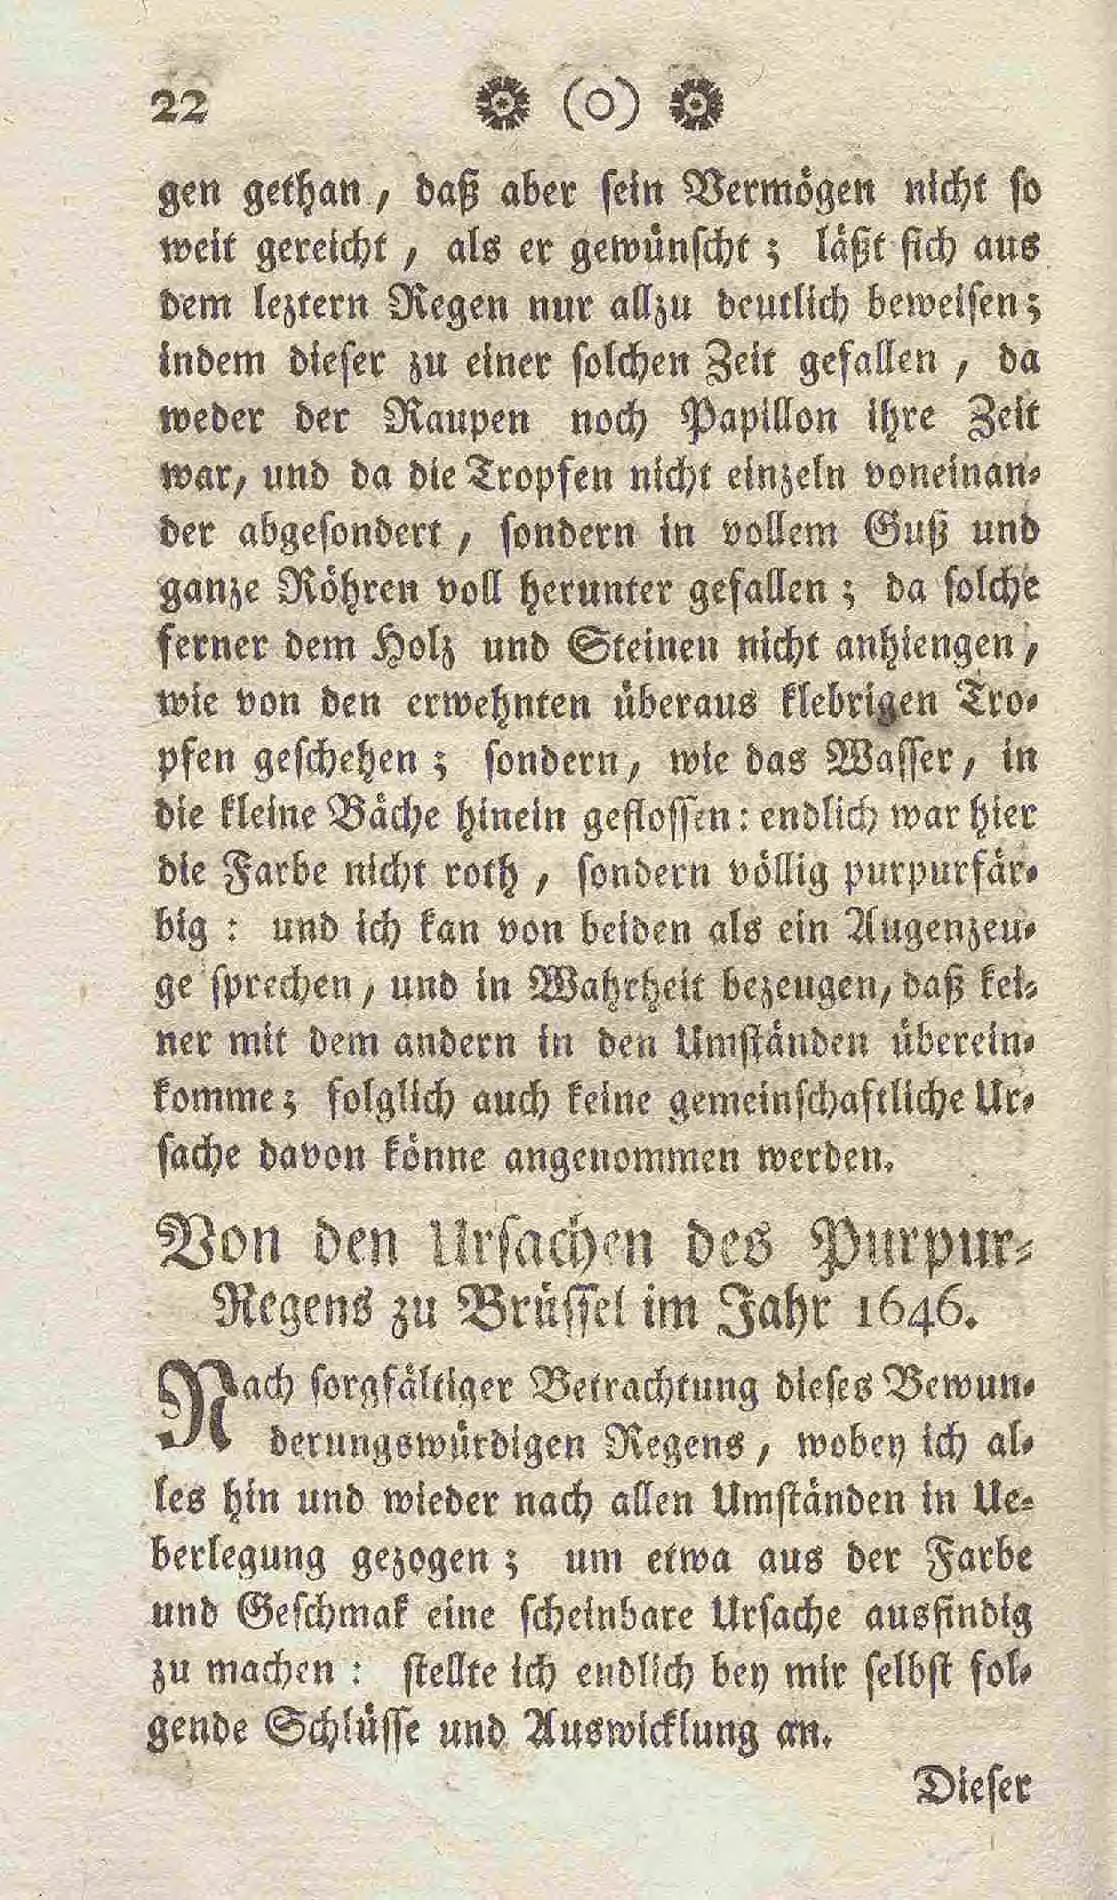 22 (O)
gen gethan, daß aber sein Vermögen nicht so
weit gereicht, als er gewünscht; läßt sich aus
dem leztern Regen nur allzu deutlich beweisen;
indem dieser zu einer solchen Zeit gefallen, da
weder der Raupen noch Papillon ihre Zeit
war, und da die Tropfen nicht einzeln voneinan-
der abgesondert, sondern in vollem Guß und
ganze Röhren voll herunter gefallen; da solche
ferner dem Holz und Steinen nicht anhiengen,
wie von den erwehnten überaus klebrigen Tro-
pfen geschehen; sondern, wie das Wasser, in
die kleine Bäche hinein geflossen: endlich war hier
die Farbe nicht roth, sondern völlig purpurfär-
big: und ich kan von beiden als ein Augenzeu-
ge sprechen, und in Wahrheit bezeugen, daß kei-
ner mit dem andern in den Umständen überein-
komme; folglich auch keine gemeinschaftliche Ur-
sache davon könne angenommen werden.
Von den Ursachen des Purpur-
Regens zu Brüssel im Jahr 1646.
Nach sorgfältiger Betrachtung dieses Bewun-
derungswürdigen Regens, wobey ich al-
les hin und wieder nach allen Umständen in Ue-
berlegung gezogen; um etwa aus der Farbe
und Geschmak eine scheinbare Ursache ausfindig
zu machen: stellte ich endlich bey mir selbst fol-
gende Schlüsse und Auswicklung an.
Dieser